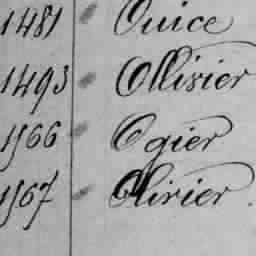 1481 Ouice
1493 Ollivier
1566 Ogier
1567 Olivier.